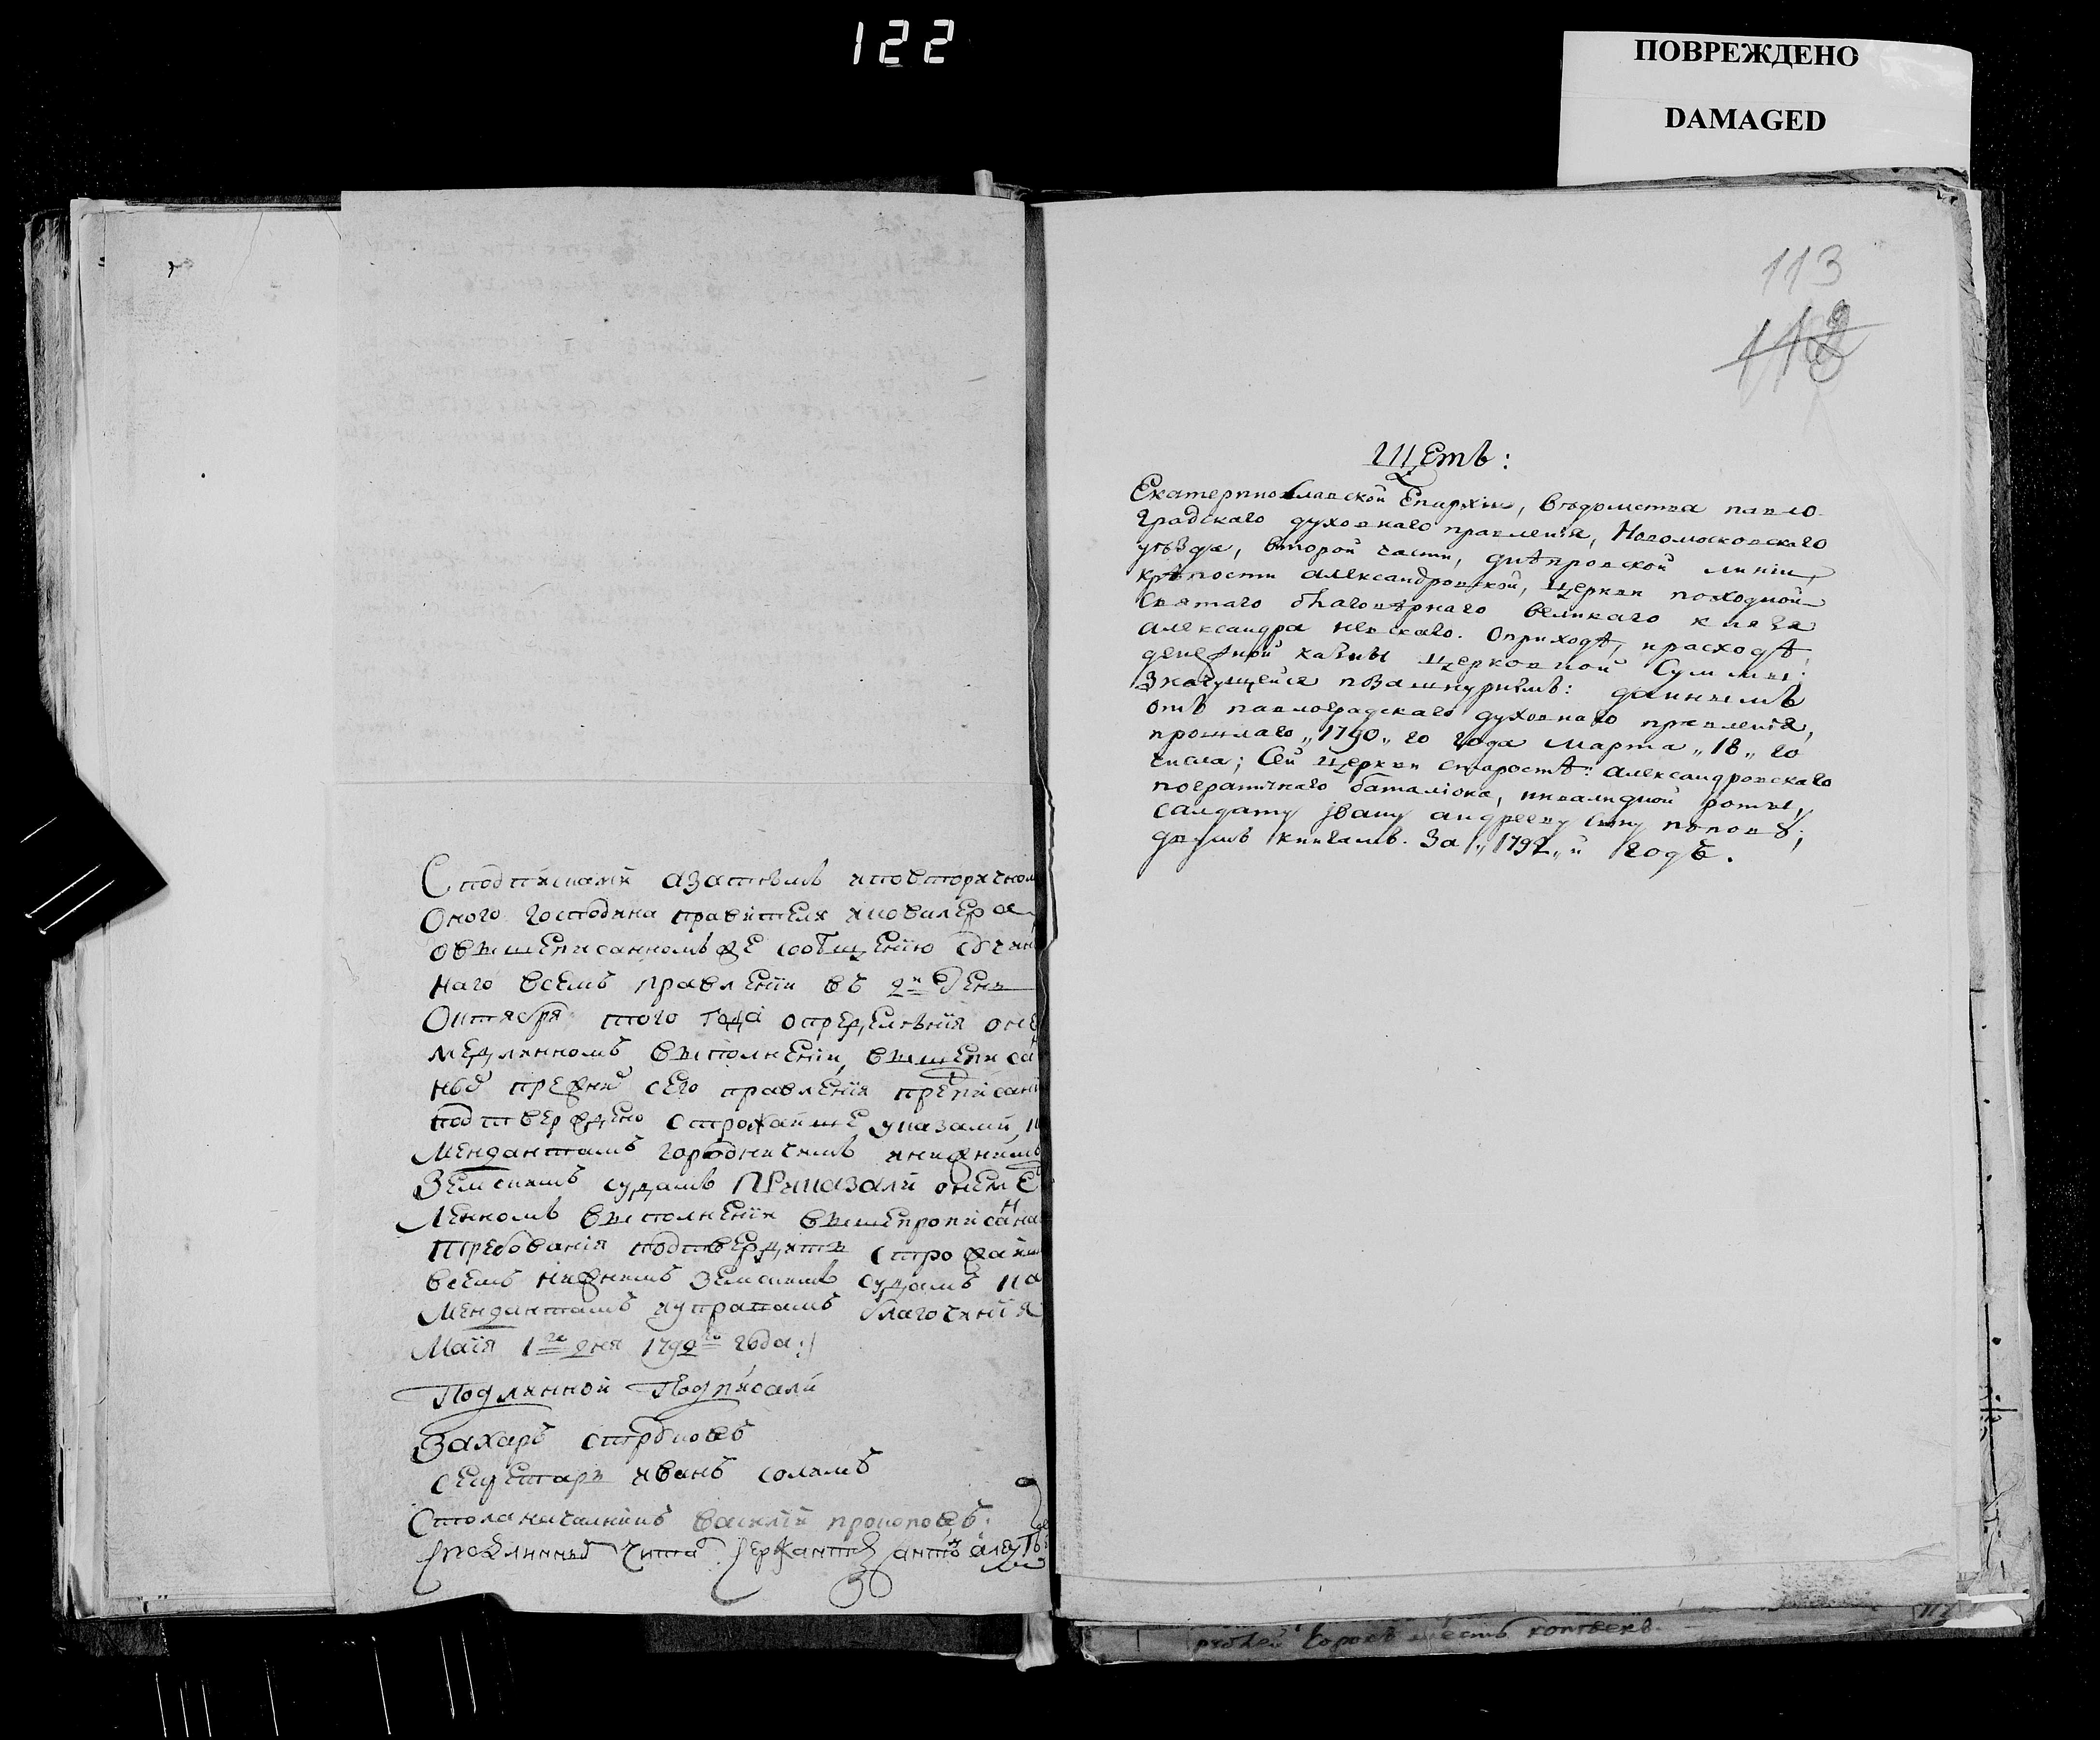 122
ПОВРЕЖДЕНО
DAMAGED
Сподписамй азатѣмъ иповторичном
Оного господина правителя ииовалера
овышеписанномъ же сообщенїю сочинѣ
наго всемъ правленїи въ 2й день
Октября того года определѣнїя оне
медлянномъ выполненїи, вышеписан
ные прежнй сего правленїя препйсанї
подтверждено строжайше указамй, к
Мендантамъ городничимъ инижнимъ
Земскимъ судамъ Приказали онеме
ленномъ выполненїи вышепропйсанна
требованїя подтвердить строжайш
всемъ нижнимъ земскимъ судамъ ко
Мендантамъ иуправамъ благочинїя
Маїя 1го дня 1792го года:/
Подлинной Подпйсалй
Захаръ
секретарь иванъ
Столаначалникъ Василїй прокоповъ.
113
112
Щетъ:
Екатеринославской Епархіи, Вѣдомства павло
градскаго духовнаго правленія, Новомосковскаго
уѣзда, второй части, днѣпровской линіи,
крѣпости александровской, церкви походной
Святаго благовѣрнаго великаго князя
александра невскаго. Оприходѣ, ирасходѣ,
денежной казны церковной Суммы:
Значущейся пошнурнымъ: даннымъ
отъ павлоградскаго духовнаго правленія,
прошлаго „1790„ го года марта „18„ го
числа; Сей церкви старостѣ: александровскаго
пограничнаго баталіона, инвалидной роты,
салдату Ивану андрееву сыну попову;
двумъ книгамъ. За „1792„ й годъ.
рублей Сорокъ шесть копѣекъ.